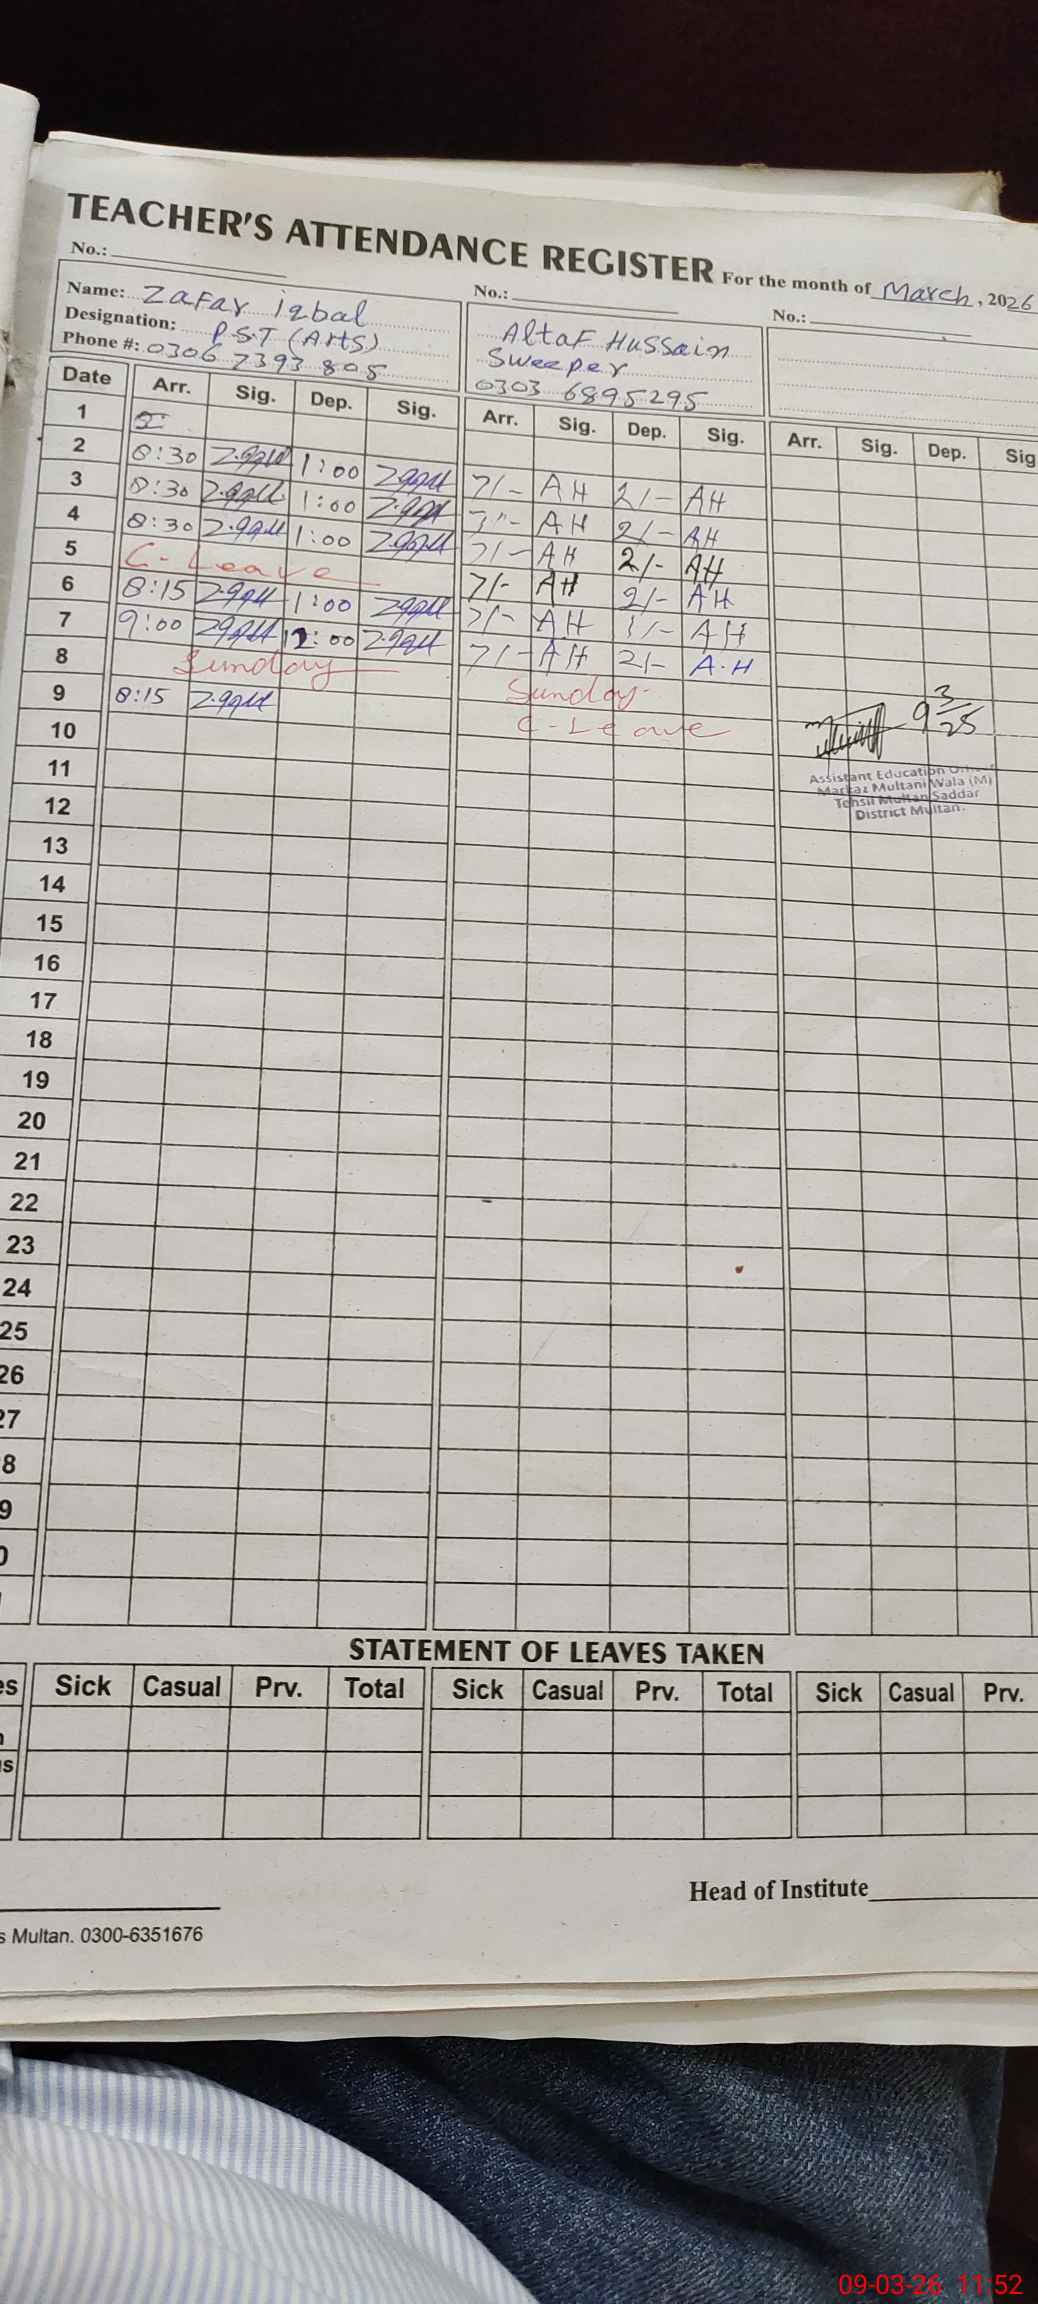 TEACHER'S ATTENDANCE REGISTER For the month of March, 2026
No.: No.: No.:
Name: Zafar iqbal
Designation: P.S.T (Arts)
Phone #: 0306 7393 805
Altaf Hussain
Sweeper
0303 6895295
Date Arr. Sig. Dep. Sig. Arr. Sig. Dep. Sig. Arr. Sig. Dep. Sig
1
2 8:30 1:00 7/- AH 2/- AH
3 8:30 1:00 AH 2/- AH
4 8:30 1:00 7/- AH 2/- AH
5 C-Leave 7/- AH 2/- AH
6 8:15 1:00 7/- AH AH
7 9:00 12:00 7/- AH 2/- A.H
8 Sunday Sunday
9 8:15 C-Leave
10
11
12
13
14
15
16
17
18
19
20
21
22
23
24
25
26
27
8
9
0
9 3/25
Assistant Education
Markaz Multani Wala (M)
Tehsil Multan Saddar
District Multan.
STATEMENT OF LEAVES TAKEN
es Sick Casual Prv. Total Sick Casual Prv. Total Sick Casual Prv.
Head of Institute
s Multan. 0300-6351676
09-03-26 11:52